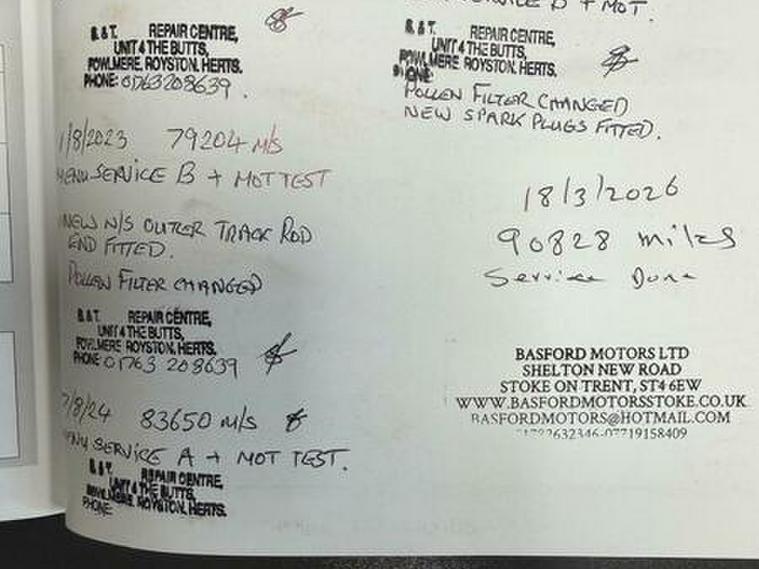 B. & T. REPAIR CENTRE,
UNIT 4 THE BUTTS,
FOWLMERE, ROYSTON, HERTS.
PHONE: 01763 208639.
1/8/2023 79204 M/S
MENU SERVICE B + MOT TEST
NEW N/S OUTER TRACK ROD
END FITTED.
POLLEN FILTER CHANGED
B & T. REPAIR CENTRE,
UNIT 4 THE BUTTS,
FOWLMERE, ROYSTON, HERTS.
PHONE: 01763 208639
7/8/24 83650 M/S
MENU SERVICE A + MOT TEST.
B & T. REPAIR CENTRE,
UNIT 4 THE BUTTS,
FOWLMERE, ROYSTON, HERTS.
PHONE:
SERVICE B + MOT.
B & T. REPAIR CENTRE,
UNIT 4 THE BUTTS,
FOWLMERE, ROYSTON, HERTS.
PHONE:
POLLEN FILTER CHANGED
NEW SPARK PLUGS FITTED.
18/3/2026
90828 miles
Service Done
BASFORD MOTORS LTD
SHELTON NEW ROAD
STOKE ON TRENT, ST4 6EW
WWW.BASFORDMOTORSSTOKE.CO.UK
BASFORDMOTORS@HOTMAIL.COM
01782632346-07719158409